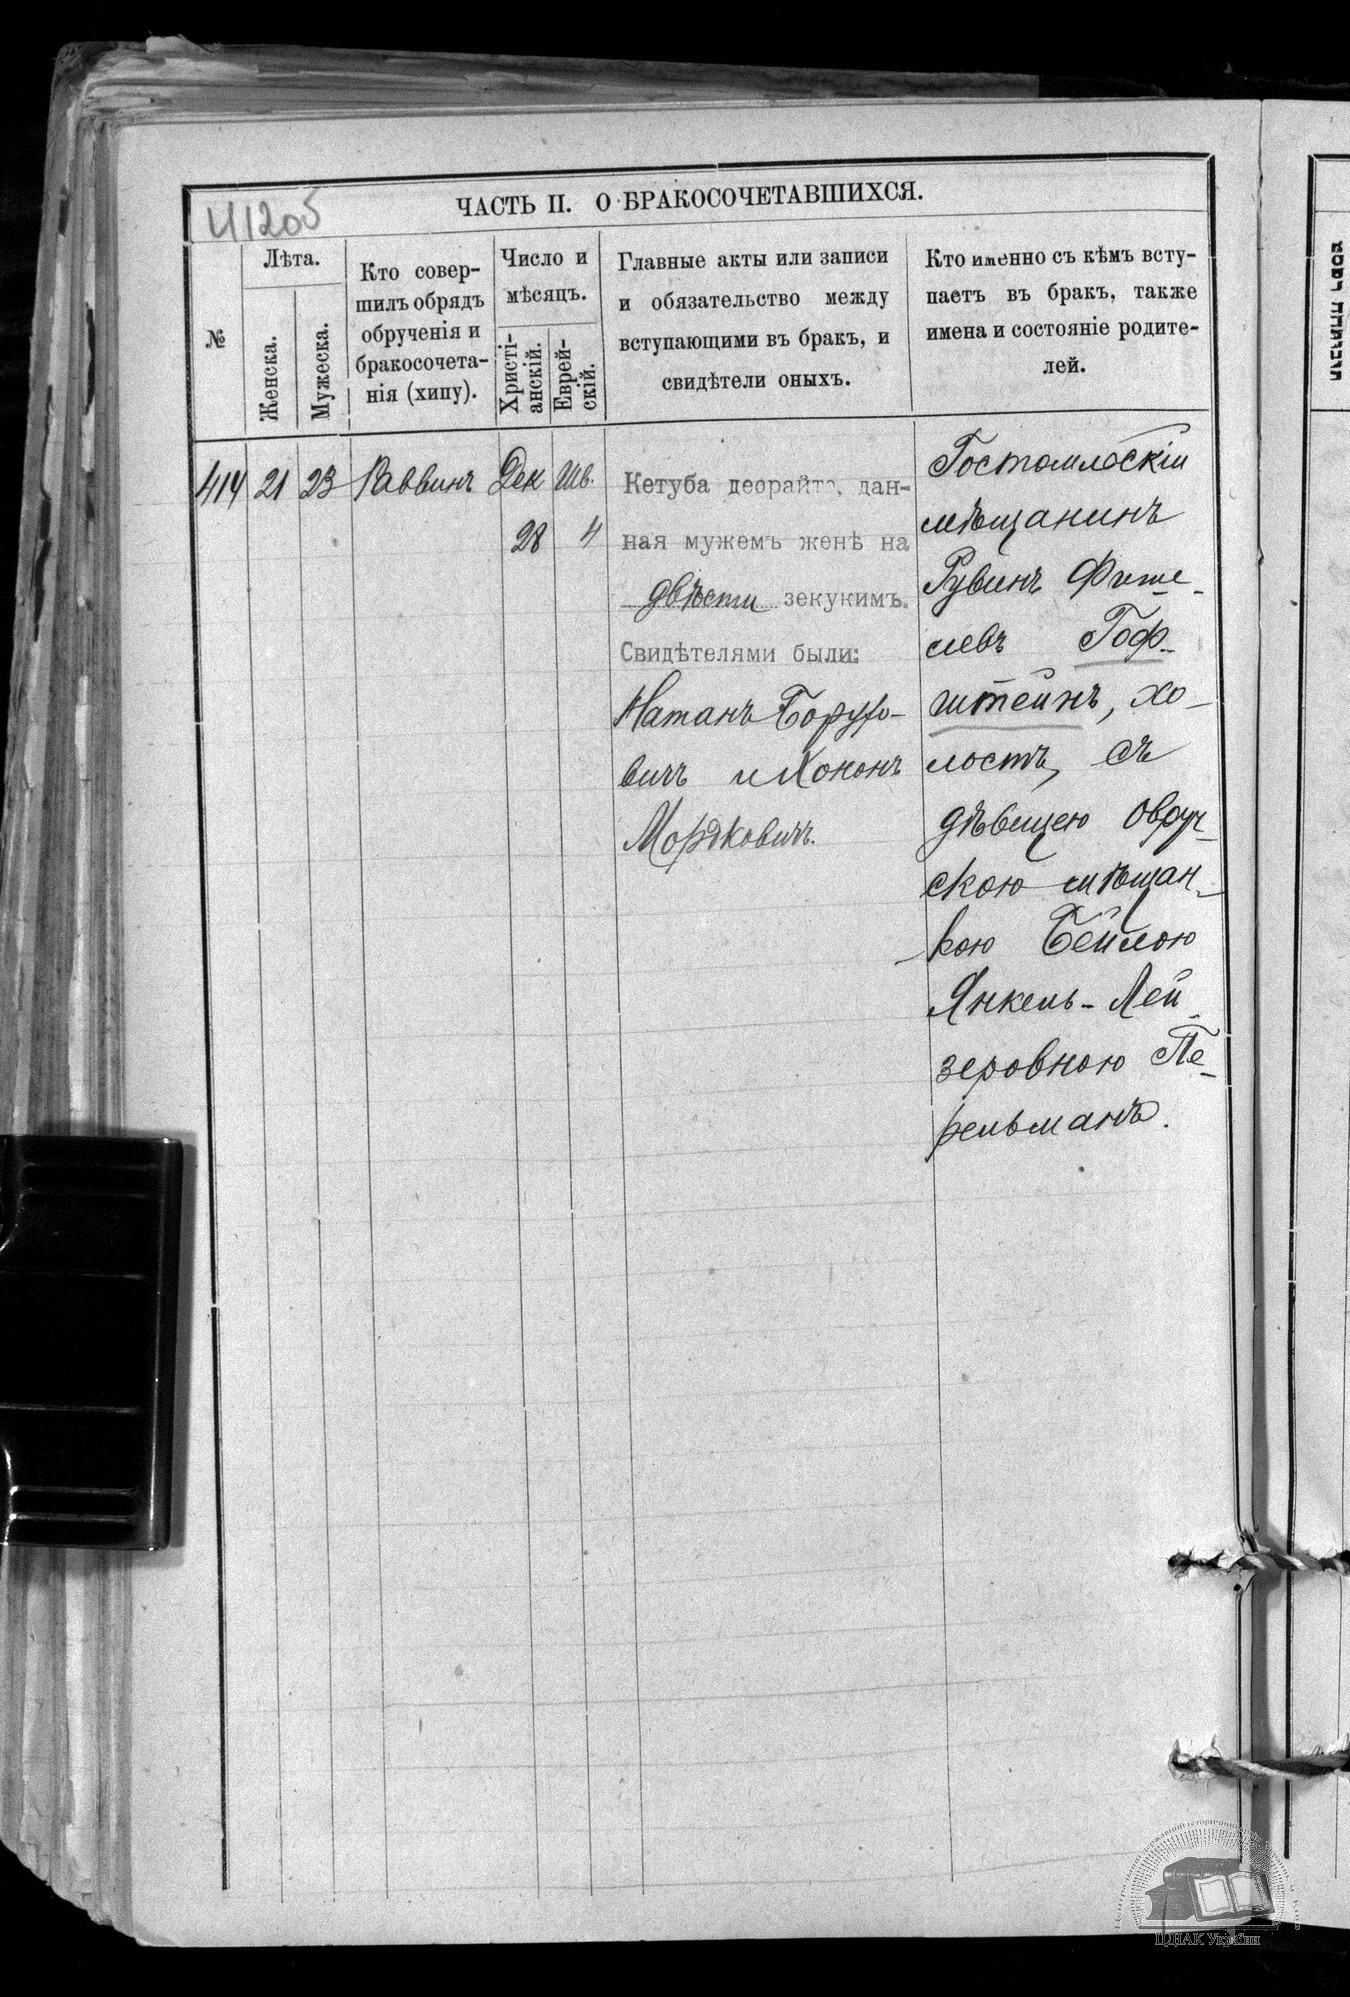 41205
ЧАСТЬ II. О БРАКОСОЧЕТАВШИХСЯ.
№
Лѣта.
Женска.
Мужеска.
Кто совер-
шилъ обрядъ
обрученія и
бракосочета-
нія (хипу).
Число и
мѣсяцъ.
Христі-
анскій.
Еврей-
скій.
Главные акты или записи
и обязательство между
вступающими въ бракъ, и
свидѣтели оныхъ.
Кто именно съ кѣмъ всту-
паетъ въ бракъ, также
имена и состояніе родите-
лей.
414 21 23 Раввинъ Дек Шв.
28 4
Кетуба деорайта, дан-
ная мужемъ женѣ на
двѣсти зекукимъ.
Свидѣтелями были:
Натанъ Борухо-
вичъ и Хононъ
Мордковичъ.
Гостомлоскій
мѣщанинъ
Рувинъ Фише-
левъ Гоф-
штейнъ, хо-
лостъ, съ
дѣвицею Овруч-
скою мѣщан-
кою Бейлою
Янкель-Лей-
зеровною Пе-
рельманъ.
ЦДІАК України